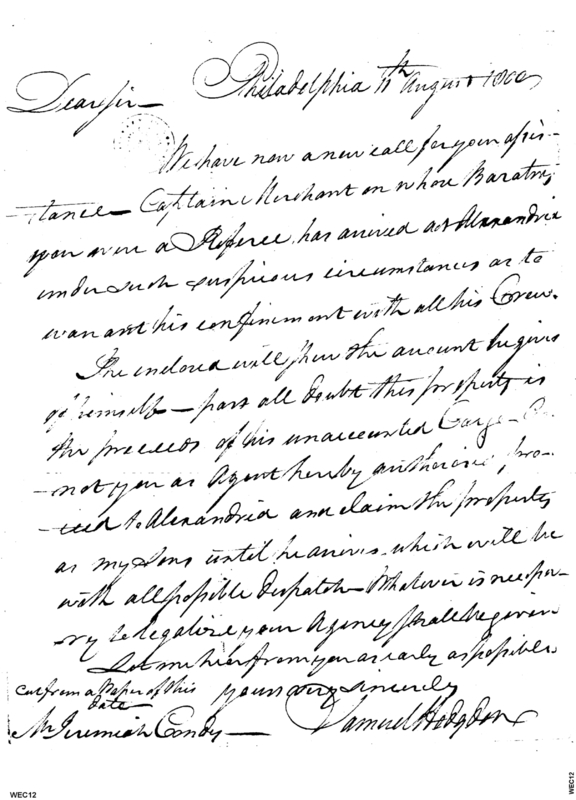 Philadelphia 11th August 1800
Dear sir
We have now a new call for your assis-
tance Captain Merchant on whose Baratry
you were a Referee, has arrived at Alexandria
under such suspicious circumstances as to
warrant his confinement with all his Crew.
The enclosed will shew the account he gives
of himself — past all doubt this property is
the proceeds of his unaccounted Cargo
not you as Agent hereby authorised, pro-
ceed to Alexandria and claim the property
as my Sons until he arrives which will be
with all possible despatch— Whatever is necessa-
ry to legalise your Agency shall be given
Let me hear from you as early as possible
Cut from a Paper of this
date
yours very sincerely
Samuel Hodgdon
Mr Jeremiah Condy
WEC12
WEC12